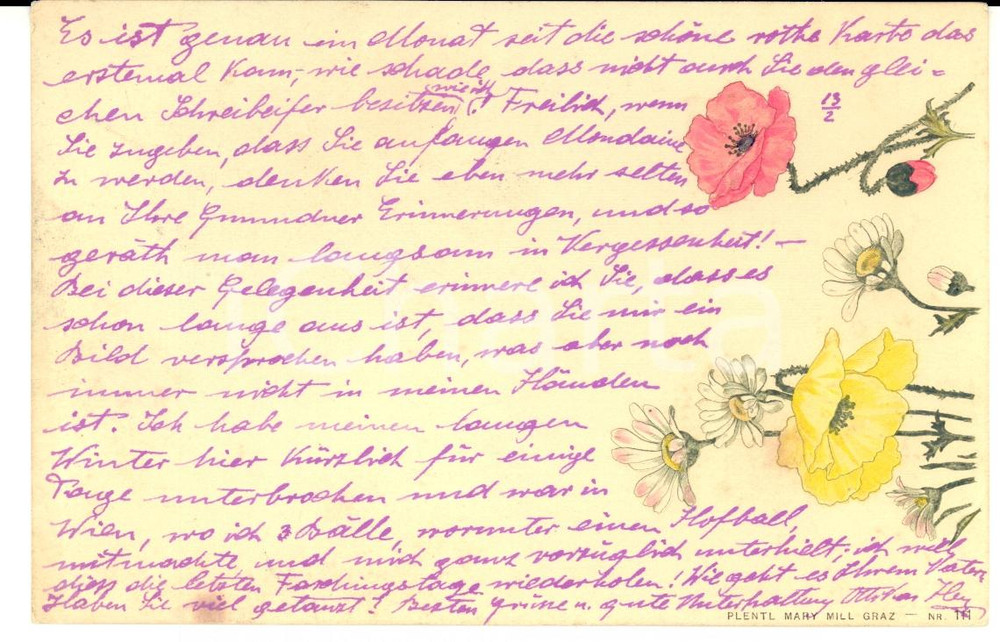 Es ist genau ein Monat seit die schöne rothe Karte das
erstemal kam; wie schade, dass nicht auch Sie den glei=
chen Schreibeifer besitzen wie ich! Freilich, wenn
13/2
Sie zugeben, dass Sie anfangen Mondaine
zu werden, denken Sie eben mehr selten
an Ihre Gmundner Erinnerungen, und so
geräth man langsam in Vergessenheit! —
Bei dieser Gelegenheit erinnere ich Sie, dass es
schon lange aus ist, dass Sie mir ein
Bild versprochen haben, was aber noch
immer nicht in meinen Händen
ist. Ich habe meinen langen
Winter hier kürzlich für einige
Tage unterbrochen und war in
Wien, wo ich 3 Bälle, worunter einen Hofball,
mitmachte und mich ganz vorzüglich unterhielt; ich will
dies die letzten Faschingstage wiederholen! Wie geht es Ihrem Vater,
Haben Sie viel getanzt? Besten Grüsse u. gute Unterhaltung
PLENTL MARY MILL GRAZ — NR. 111